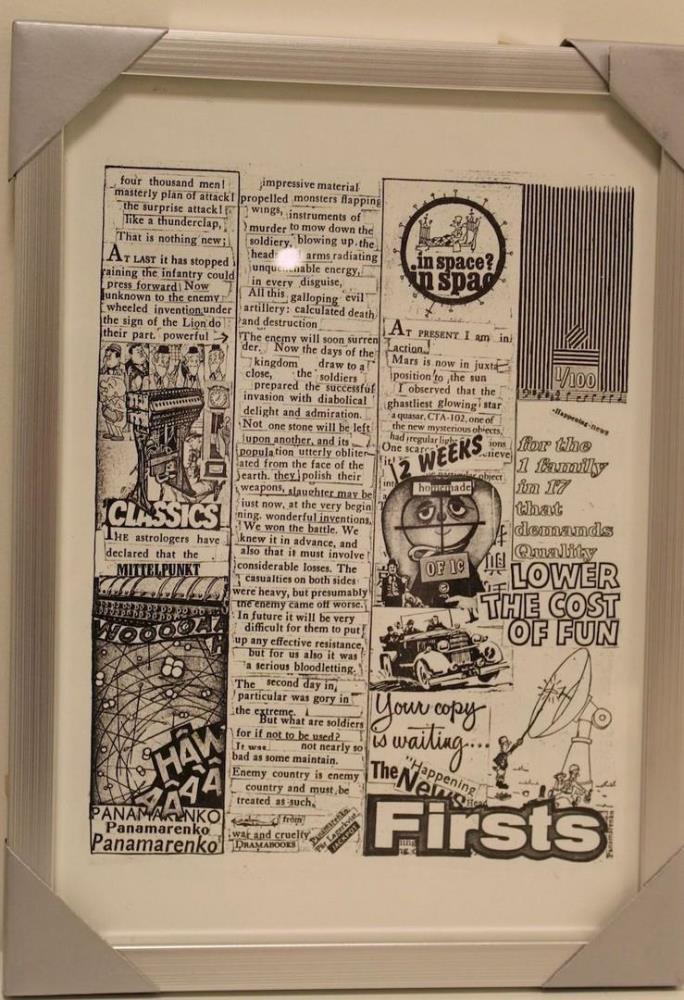 four thousand men!
masterly plan of attack!
the surprise attack!
like a thunderclap,
That is nothing new;
AT LAST it has stopped
raining the infantry could
press forward Now
unknown to the enemy
wheeled invention under
the sign of the Lion do
their part. powerful →
CLASSICS
THE astrologers have
declared that the
MITTELPUNKT
WOOOOAA
HÂW
ÂÂÂÂ
PANAMARENKO
Panamarenko
Panamarenko
impressive material
propelled monsters flapping
wings, instruments of
murder to mow down the
soldiery, blowing up the
heads arms radiating
unquenchable energy,
in every disguise,
All this galloping evil
artillery: calculated death
and destruction
The enemy will soon surren
der. Now the days of the
kingdom draw to a
close, the soldiers
prepared the successful
invasion with diabolical
delight and admiration.
Not one stone will be left
upon another, and its
population utterly obliter-
ated from the face of the
earth. they polish their
weapons, slaughter may be
just now, at the very begin
ning. wonderful inventions,
We won the battle. We
knew it in advance, and
also that it must involve
considerable losses. The
casualties on both sides
were heavy, but presumably
the enemy came off worse.
In future it will be very
difficult for them to put
up any effective resistance,
but for us also it was
a serious bloodletting.
The second day in
particular was gory in
the extreme.
But what are soldiers
for if not to be used?
It was not nearly so
bad as some maintain.
Enemy country is enemy
country and must be
treated as such.
from
war and cruelty
DRAMABOOKS
Panamarenko
in space?
in spac
AT PRESENT I am in
action.
Mars is now in juxta
position to the sun
I observed that the
ghastliest glowing star
a quasar, CTA-102, one of
the new mysterious objects,
had irregular
One
2 WEEKS
object
homemade
OF 1¢
Your copy
is waiting...
The "Happening
News
1/100
-Happening-news
for the
1 family
in 17
that
demands
Quality
LOWER
THE COST
OF FUN
Firsts
Panamarenko